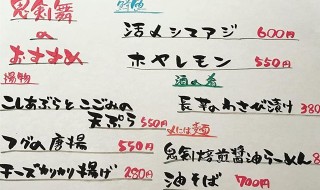 鬼剣舞
の
おすすめ
揚物
こしあぶらとこごみの
天ぷら 550円
フグの唐揚 550円
チーズカリカリ揚げ 280円
活〆シマアジ 600円
ホヤレモン 550円
酒の肴
長芋のわさび漬け 380
〆には麺
鬼剣焙煎醤油らーめん 8
油そば 700円